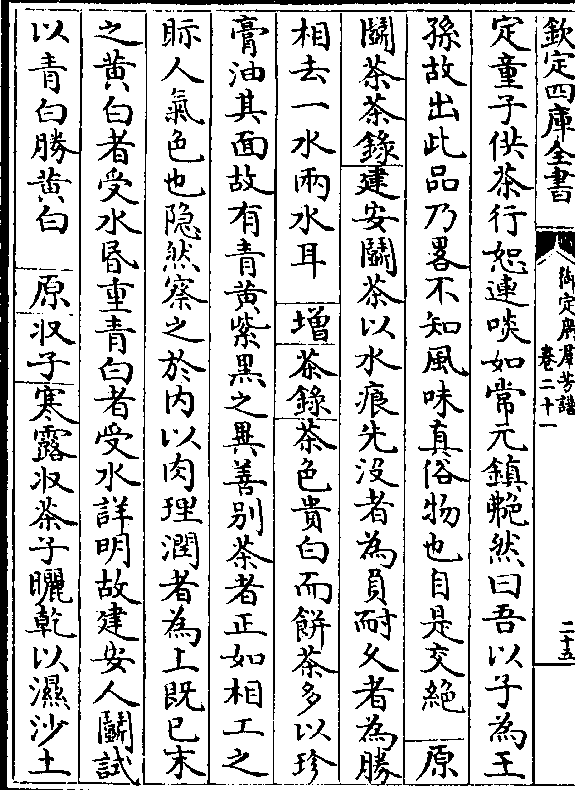 欽定四庫全書
御定廣羣芳譜
卷二十一
二十五
定童子供茶行恕連啖如常元鎮艴然曰吾以子為王
孫故出此品乃畧不知風味真俗物也自是交絶　原
鬭茶茶錄建安鬭茶以水痕先没者為負耐久者為勝
相去一水兩水耳　增茶錄茶色貴白而餅茶多以珍
膏油其面故有青黄紫黑之異善别茶者正如相工之
眎人氣色也隐然察之於内以肉理潤者為上既已末
之黄白者受水昬重青白者受水詳明故建安人鬭試
以青白勝黄白　原収子寒露収茶子曬乾以濕沙土